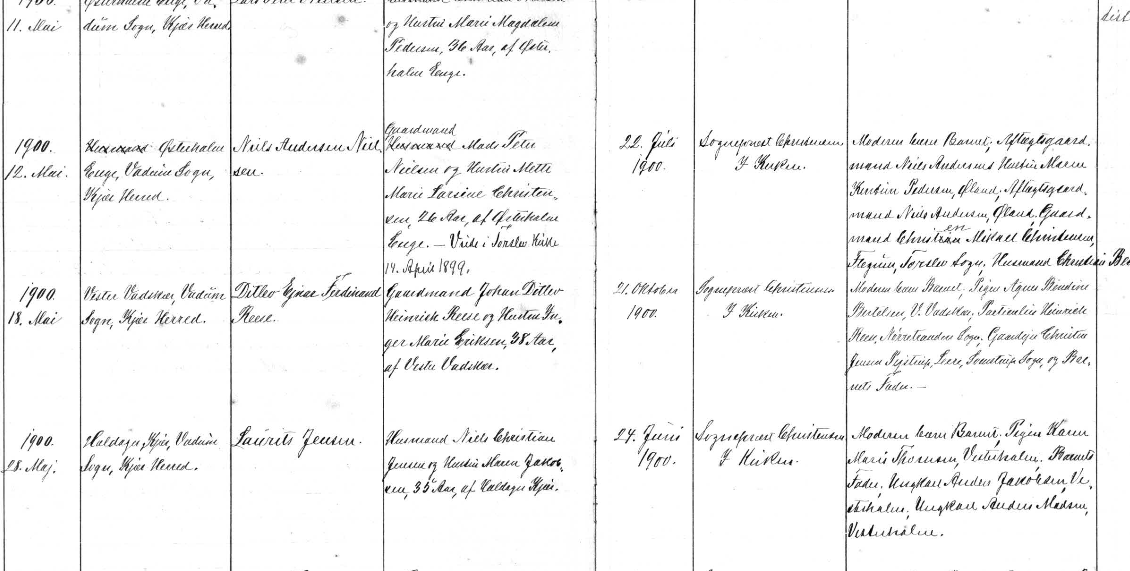 11. Mai
dum Sogn, Kjær Herred.
og Hustru Marie Magdalene
Pedersen, 36 Aar, af Øster-
halm Enge.
1900.
12. Mai.
Husmand Østerhalm
Enge, Vadum Sogn,
Kjær Herred.
Niels Andersen Niel-
sen.
Gaardmand
Husmand Mads Peter
Nielsen og Hustru Mette
Marie Larsine Christen-
sen, 26 Aar, af Østerhalm
Enge. — Viede i Torslev Kirke
14. April 1899.
22. Juli
1900.
Sognepræst Christensen
I Kirken.
Moderen bar Barnet, Aftægtsgaard-
mand Niels Andersens Hustru Maren
Kirstine Pedersen, Øland, Aftægtsgaard-
mand Niels Andersen, Øland, Gaard-
mand Christen Mikael Christensen,
Torslev Sogn, Husmand Christian
1900.
18. Mai
Vester Vadskær, Vadum
Sogn, Kjær Herred.
Ditlev Ejnar Ferdinand
Reese.
Gaardmand Johan Ditlev
Heinrich Reese og Hustru In-
ger Marie Eriksen, 38 Aar,
af Vester Vadskær.
21. Oktober
1900.
Sognepræst Christensen
I Kirken.
Moderen bar Barnet, Pigen Agnes
Bertelsen, V. Vadskær, Partikulier Heinrich
Reese, Nørretranders Sogn, Gaardejer Christen
Jensen Sogn, og Bar-
nets Fader. —
1900.
28. Maj.
Haldager Kjær, Vadum
Sogn, Kjær Herred.
Laurits Jensen.
Husmand Niels Christian
Jensen og Hustru Maren Jakob-
sen, 35 Aar, af Haldager Kjær.
24. Juni
1900.
Sognepræst Christensen
I Kirken.
Moderen bar Barnet. Pigen Karen
Marie Thomsen, Vesterhalm, Barnets
Fader, Ungkarl Anders Jakobsen, Ve-
sterhalm, Ungkarl Anders Madsen,
Vesterhalm.